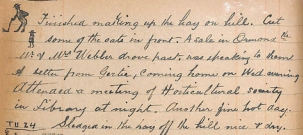 Finished making up the hay on hill. Cut
some of the oats in front. A sale in Ormond
Mr & Mrs Webber drove past. was speaking to them
A letter from Gertie, coming home on Wed. evening
Attended a meeting of Horticultural society
in Library at night. Another fine hot day.
TU 24 Sledged in the hay off the hill nice & dry.